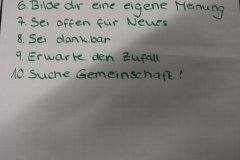 6. Bilde dir eine eigene Meinung
7. Sei offen für Neues
8. Sei dankbar
9. Erwarte den Zufall
10. Suche Gemeinschaft!